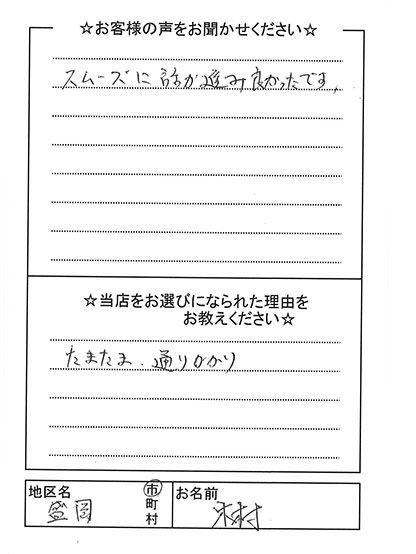 ☆お客様の声をお聞かせください☆
スムーズに話が進み良かったです。
☆当店をお選びになられた理由を
お教えください☆
たまたま、通りがかり
地区名
盛岡
市
町
村
お名前
木村